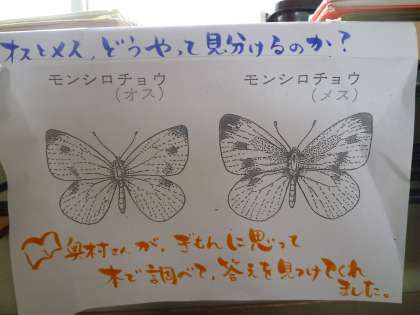 オスとメス、どうやって見分けるのか?
モンシロチョウ
(オス)
モンシロチョウ
(メス)
奥村さんが、ぎもんに思って
本で調べて、答えを見つけてくれ
ました。